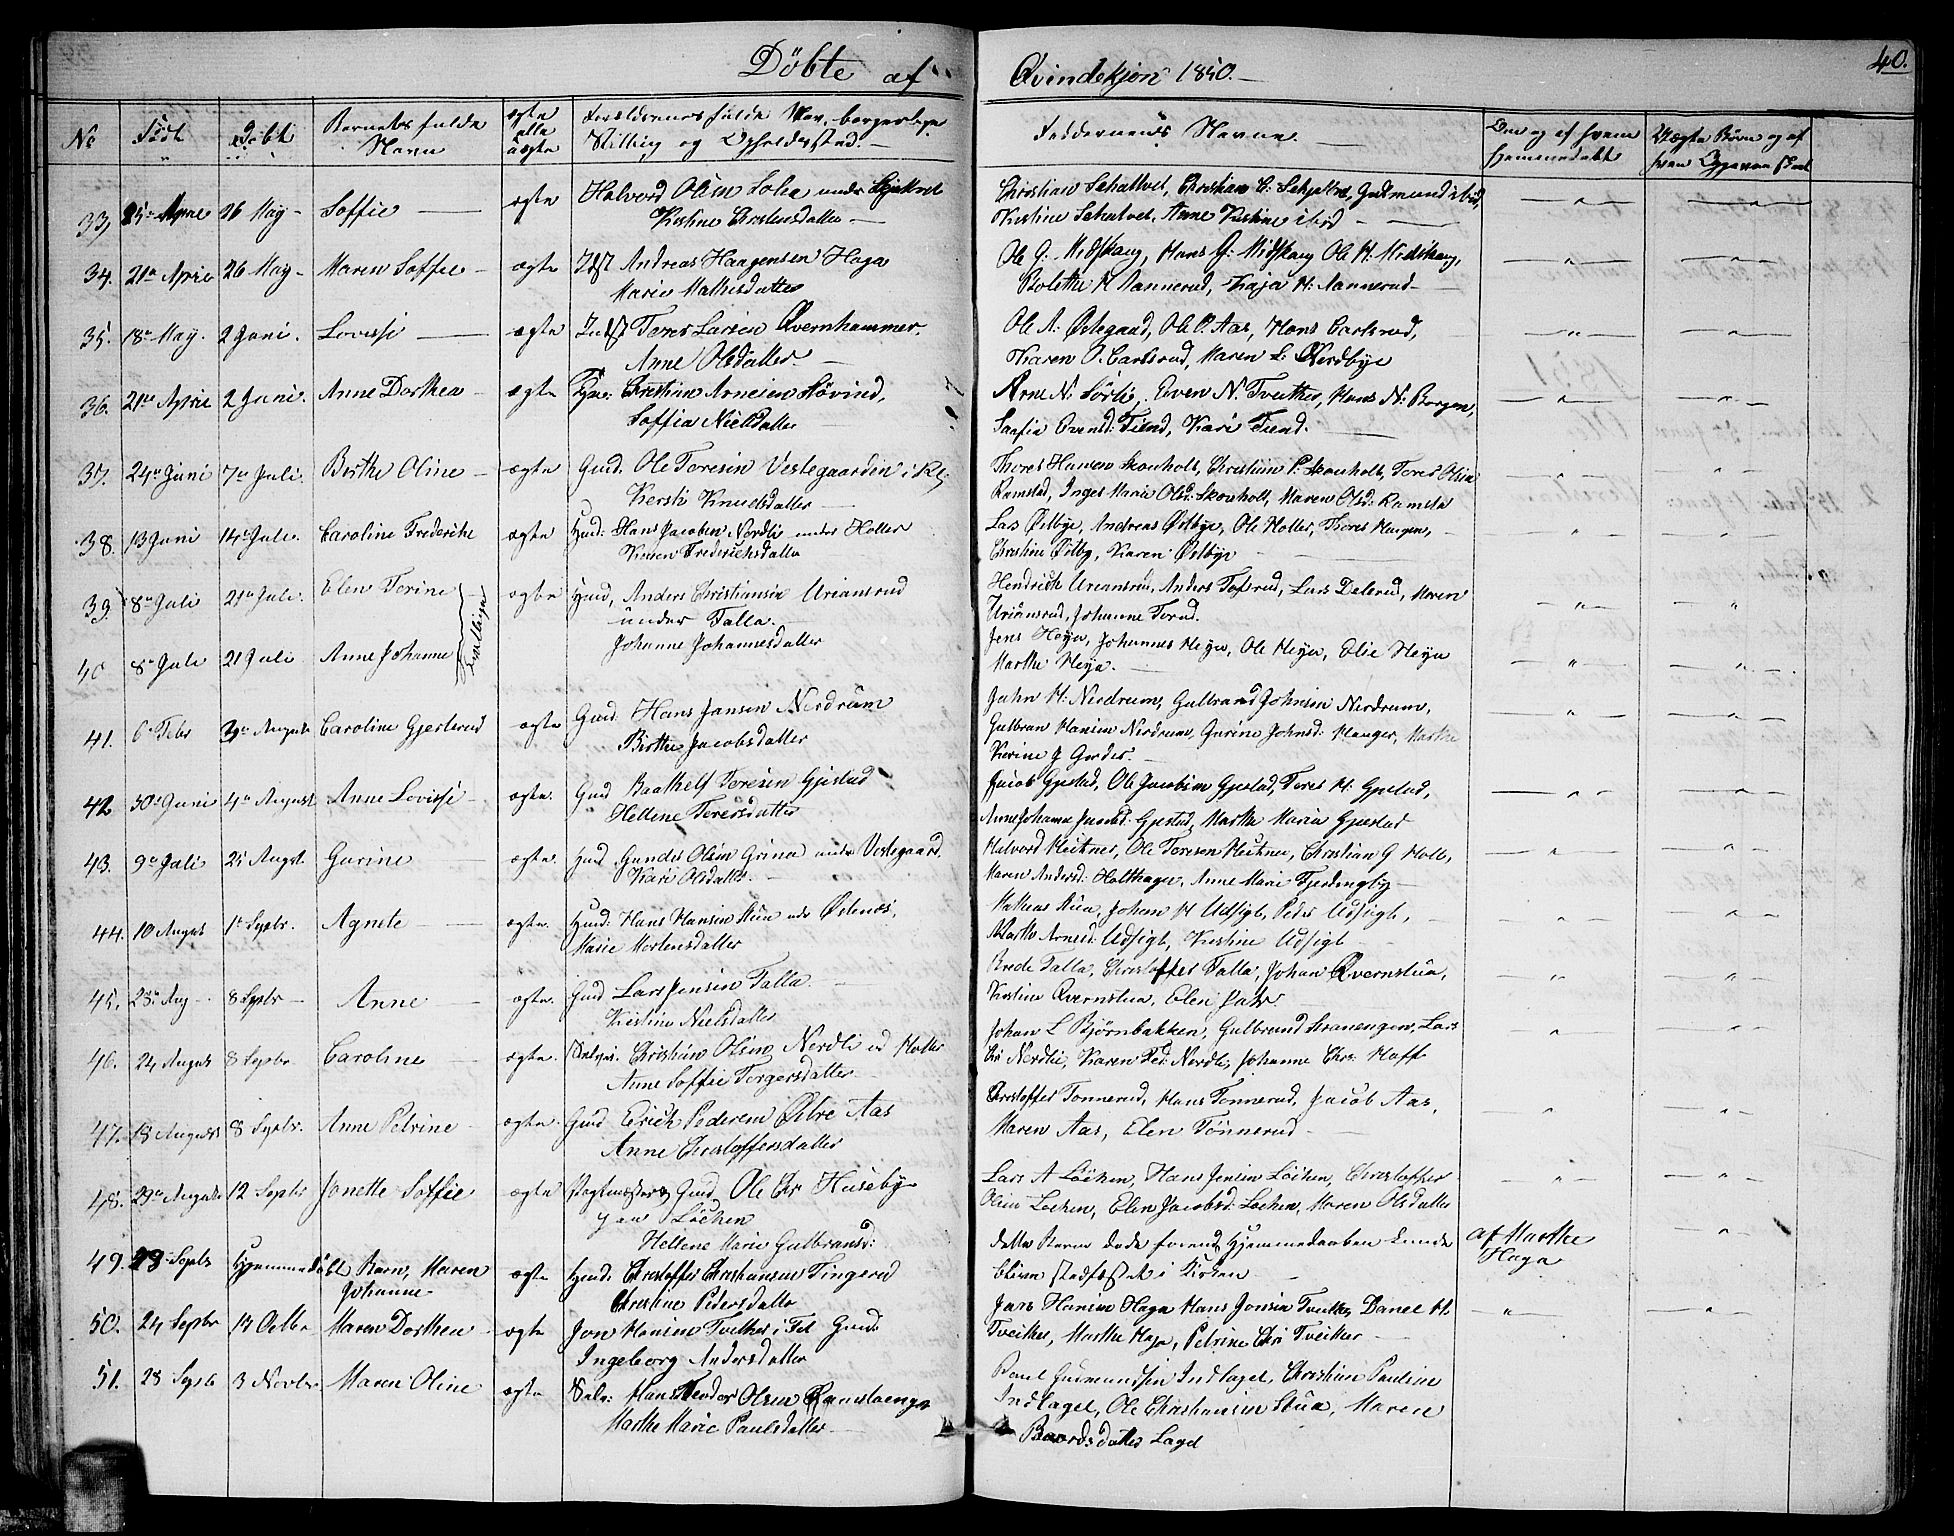 Döbte af Qvindekjön 1850.
40.
No
Födt
Döbt
Barnets fulde Navn
ægte eller uægte
Forældrenes fulde Nav, borgerlige Stilling og Opholdssted.
Faddernenes Navne.
Om og af hvem hjemmedöbt
Uægte Börn og af
33, 25de Aprie 26 May - Soffie ægte Halvord Olsen Solia under
Kistine Christensdatter
Christian Sehattvet, Christian C: Gudmund ibid,
Kristine Sehatvet, Anne Kistine ibid
34. 21de Aprie 26 May - Maren Soffie ægte Idst Andreas Haagensen Haga
Marie Mathisdatter
Ole G. Midskaug, Hans G: Midskaug Ole H. Midskaug,
Bolethe H Aannerud, Kaja H. Aannerud
35. 18de May. 2 Juni. Lovise ægte Indst Tores Larsen Qvernhammer.
Anne Olsdatter
Ole A: Östegaad, Ole P. Aas, Hans Carlsrud,
Karen P. Carlsrud, Maren L. Nordbye
36. 21de Aprie 2 Juni. Anne Dorthea ægte Christian Arnesen Hövind,
Soffia Nielsdatter
Arne N. Sörli, Even N. Tveither, Hans N: Borgen,
Saafia Evensd: Tiend, Kari Tiend.
37. 24de Juni 7de Juli. Berthe Oline ægte Gmd. Ole Toresen Vestegaarden i
Kersti Knudsdatter
Thores Hansen Skouholt, Christian P. Skouholt, Tores Olsen
Ramstad, Inger Marie Olsd: Skouholt, Maren Olsd: Ramsta
38. 13 Juni 14de Juli. Caroline Frederike ægte Hmd: Hans Jacobsen Nordli under Holter
Karen Frederichsdatter
Lars Östbye, Andreas Östbye, Ole Holter, Thores Haugen,
Christine Östby, Karen Östbye
39. 8de Juli 21de Juli. Elen Torine ægte Hmd, Anders Christiansen Uriansrud
under Falla.
Hendrich Uriansrud, Anders Tofsrud, Lars Delerud, Maren
Uriansrud, Johanne Torud.
40 8de Juli 21 Juli Anne Johanne
Tvillinger
Johanne Johannesdatter
Jens Heya, Johannes Heya, Ole Heya, Elie Heya
Marthe Heya.
41. 6te Febr 3de August Caroline Gjesterud ægte Gmd: Hans Jansen Nerdrum
Berthe Jacobsdatter
Jahn H. Nerdrum, Gulbrand Johnsen Nerdrum,
Gulbran Hansen Nerdrum, Gurine Johnsd: Hauger, Marthe
Karine J Garder.
42 30te Juni 4de August Anne Lovise ægte. Gmd Baathelf Toresen Gjestad
Hellene Toresdatter
Jacob Gjestad, Ole Jacobsen Gjestad, Tores H. Gjestad,
Anne Johanne Jacobsd: Gjestad, Marthe Maria Gjestad
43. 9de Juli 25 Augst. Gurine ægte. Hmd Gunder Olsen Grina under Vestegaard.
Kari Olsdatter.
Halvord Heitner, Ole Toresen Heitner, Christian G Holt,
Maren Andersd: Holthagen, Anne Marie Fjerdingby
44. 10 August 1te Septbr. Agnete ægte. Hmd: Hans Hansen Stua und Östenæs,
Marie Mortensdatter
Mathias Stua, Johan H Udsigt, Peder Udsigt,
Marthe Arnesd: Udsigt, Kristine Udsigt
45. 25de Aug 8 Septbr Anne ægte. Gmd Lars Jensen Falla
Kristine Nielsdatter
Brede Falla, Christoffer Falla, Johan Qvernstua,
Kristine Qvernstua, Elen
46. 24 August 8 Septbr Caroline ægte. Selvei. Christian Olsen Nordli ud Holter
Anne Soffie Torgersdatter
Johan L Björnbakken, Gulbrand Svaneengen, Lars
Chr Nordlie, Karen Ped: Nordli, Johanne Chrs: Hoff
47. 18 Augusts 8 Septbr. Anne Petrine ægte. Gmd Erich Pedersen Östre Aas
Anne Christoffersdatter
Christoffer Tönnerud, Hans Tönnerud, Jacob Aas,
Maren Aas, Elen Tönnerud
48. 29de August 12 Septbr Janette Soffie ægte Gmd Ole Chr Huseby
Löchen
Hellene Marie Gulbransd:
Lars A Löchen, Hans Jensen Löchen, Christoffer
Olsen Lochen, Elen Jacobsd: Lochen, Maren Olsdatter
49. 23 Septbr Hjemmedöbt Barn, Maren Johanne ægte Hmd. Christoffer Christiansen Tingerud
Christine Pedersdatter
dette Barn döde forend Hjemmedaaben kunde
bliven stadfæstet i Kirken
af Marthe Haga
50. 24 Septbr 13 Octbr Maren Dorthea ægte Jon Hansen Tveither i Fet Gmd.
Ingeborg Andersdatter
Jars Hansen Haga Hans Jonsen Tveither Danel H.
Tveither, Marthe Haga, Petrine Chr Tveither
51. 28 Septb 3 Novbr Maren Oline ægte Selv: Hans Theodor Olsen Ramstaenge
Marthe Marie Paulsdatter
Poul Gudmundsen Indlaget, Christian Paulsen
Indlaget, Ole Christiansen Stua, Maren
Baardsdatter Laget